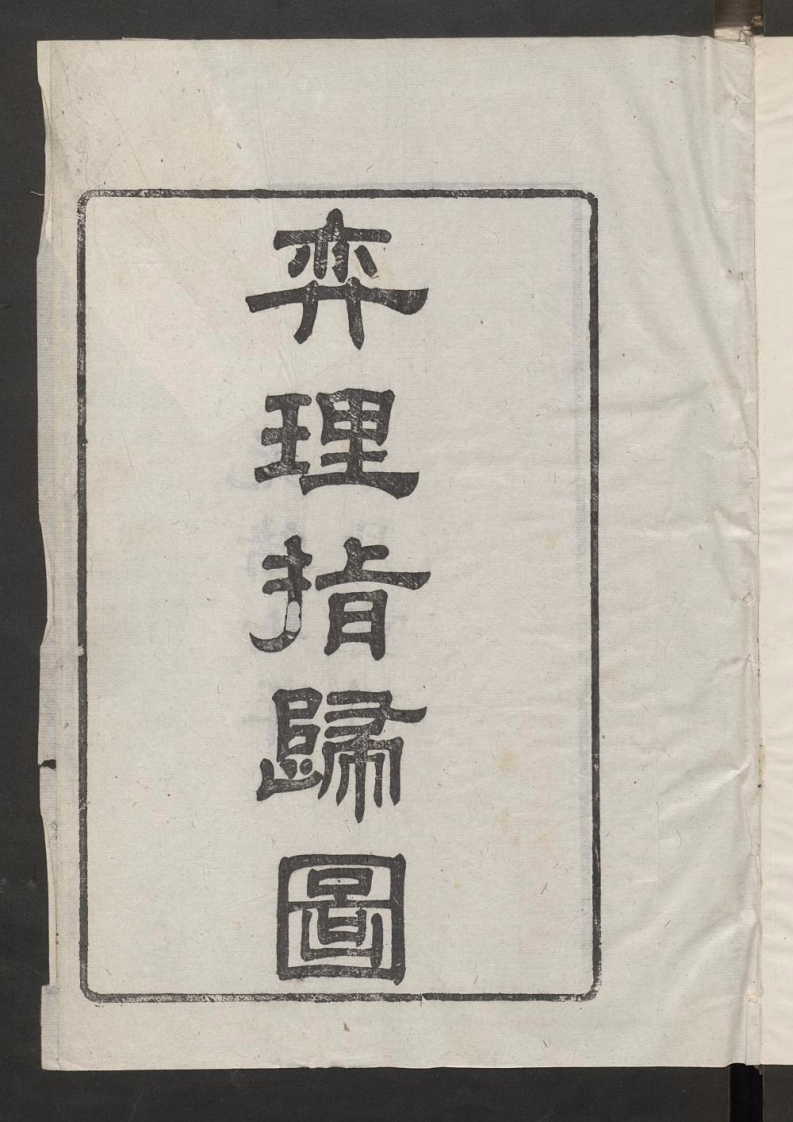 弈理指歸圖